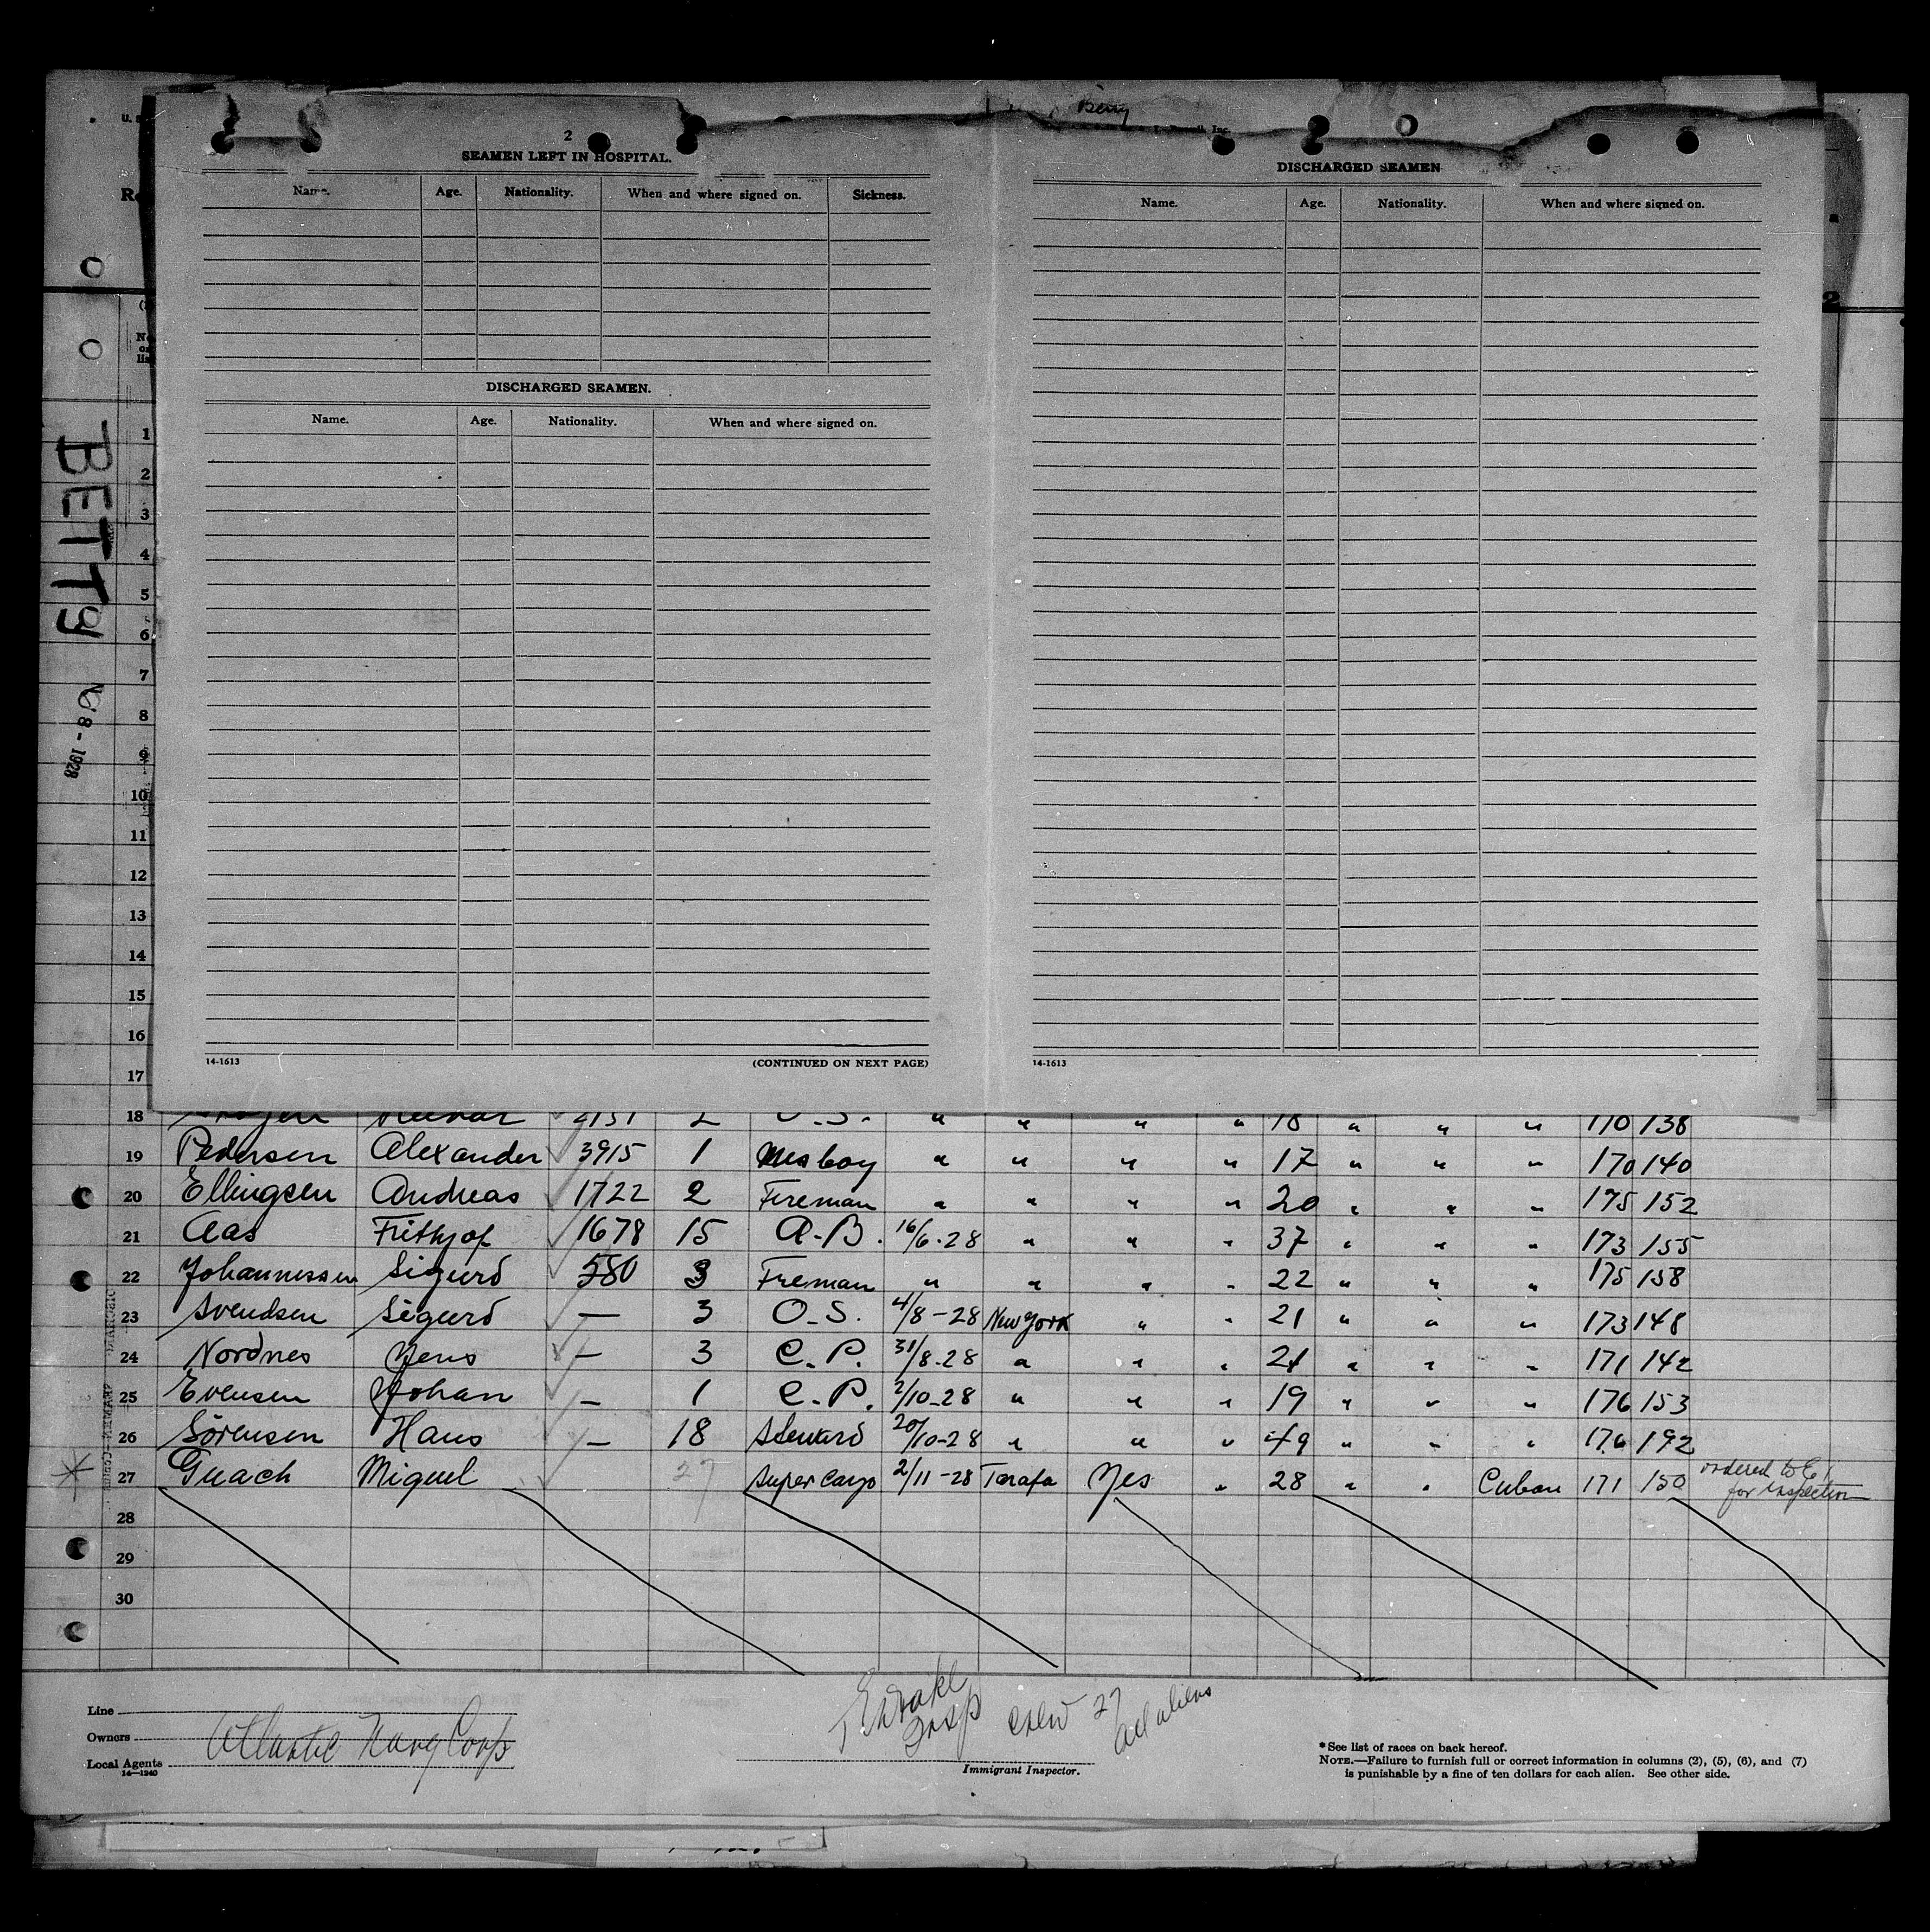 Berry
2
SEAMEN LEFT IN HOSPITAL.
Name. Age. Nationality. When and where signed on. Sickness.
DISCHARGED SEAMEN.
Name. Age. Nationality. When and where signed on.
14-1613 (CONTINUED ON NEXT PAGE)
DISCHARGED SEAMEN
Name. Age. Nationality. When and where signed on.
14-1613
BETTY
8-1928
1
2
3
4
5
6
7
8
9
10
11
12
13
14
15
16
17
18 2151 2 O.S. " " " " 18 " " " 170 138
19 Pedersen Alexander 3915 1 Mesboy " " " " 17 " " " 170 140
20 Ellingsen Andreas 1722 2 Fireman " " " " 20 " " " 175 152
21 Aas Frithjof 1678 15 A.B. 16/6-28 " " " 37 " " " 173 155
22 Johannessen Sigurd 580 3 Fireman " " " " 22 " " " 175 158
23 Svendsen Sigurd — 3 O.S. 4/8-28 New York " " 21 " " " 173 148
24 Nordnes Jens — 3 C.P. 31/8-28 " " " 21 " " " 171 142
25 Evensen Johan — 1 C.P. 2/10-28 " " " 19 " " " 176 153
26 Sörensen Hans — 18 Steward 20/10-28 " " " 49 " " " 176 192
27 Guach Miguel 27 Super Cargo 2/11-28 Tarafa Yes " 28 " " Cuban 171 150 ordered to E I
for inspection
28
29
30
Line
Owners
Local Agents Atlantic Navg Corp
14—1240
Insp crew 27
all aliens
Immigrant Inspector.
*See list of races on back hereof.
NOTE.—Failure to furnish full or correct information in columns (2), (5), (6), and (7)
is punishable by a fine of ten dollars for each alien. See other side.